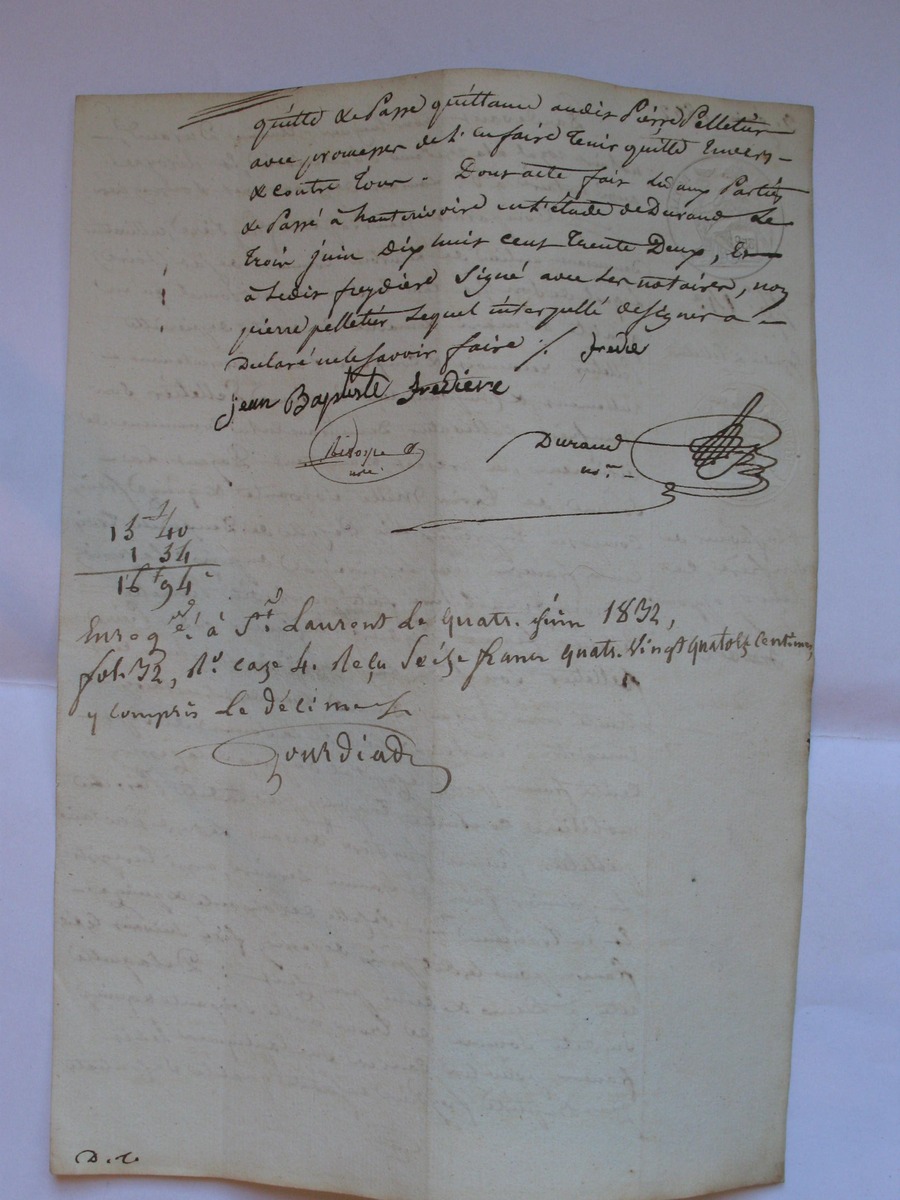 quitte & Passe quittance audit Pierre Pelletier
avec promesses de l'en faire tenir quitte Envers
& contre tous - Dont acte fait Lu aux Parties
& Passé à hautrivoire en l'étude de Durand Le
trois juin dix huit cent trente Deux, Et
à Ledit freydière Signé avec Les notaires, non
pierre pelletier Lequel interpellé de signer a -
Declaré ne le savoir faire ./. frede
jean Baptiste fredière
Durand
nre
not.re -
15 f 40
1 54
16 f 94 c
Enregtré à St. Laurent Le quatre juin 1832,
fol. 32, Ro. case 4. Reçu Seize francs quatre Vingt quatorze Centimes,
y compris Le Décime
Gourdiad
D. r.